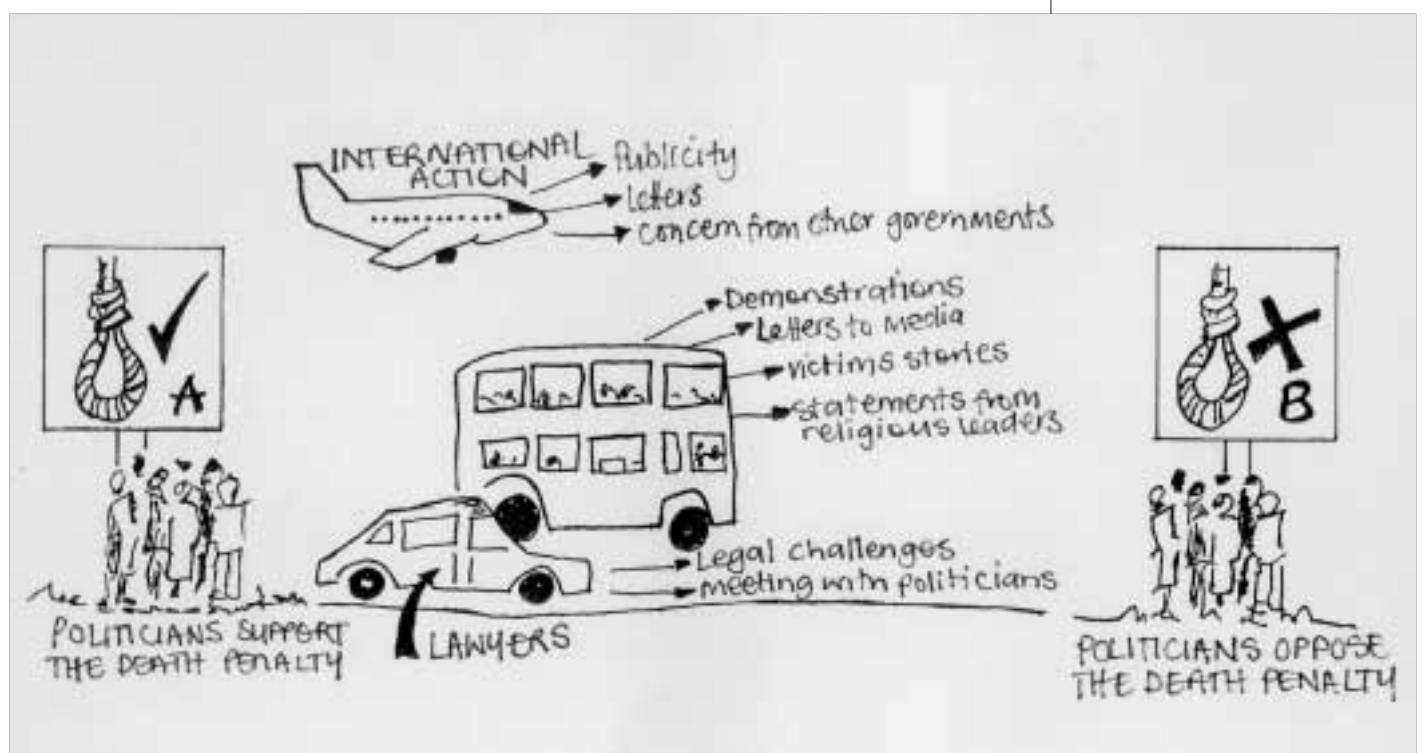 INTERNATIONAL
ACTION
Publicity
Letters
concern from other governments
A
Demonstrations
Letters to Media
victims stories
statements from
religious leaders
B
Legal challenges
meeting with politicians
LAWYERS
POLITICIANS SUPPORT
THE DEATH PENALTY
POLITICIANS OPPOSE
THE DEATH PENALTY